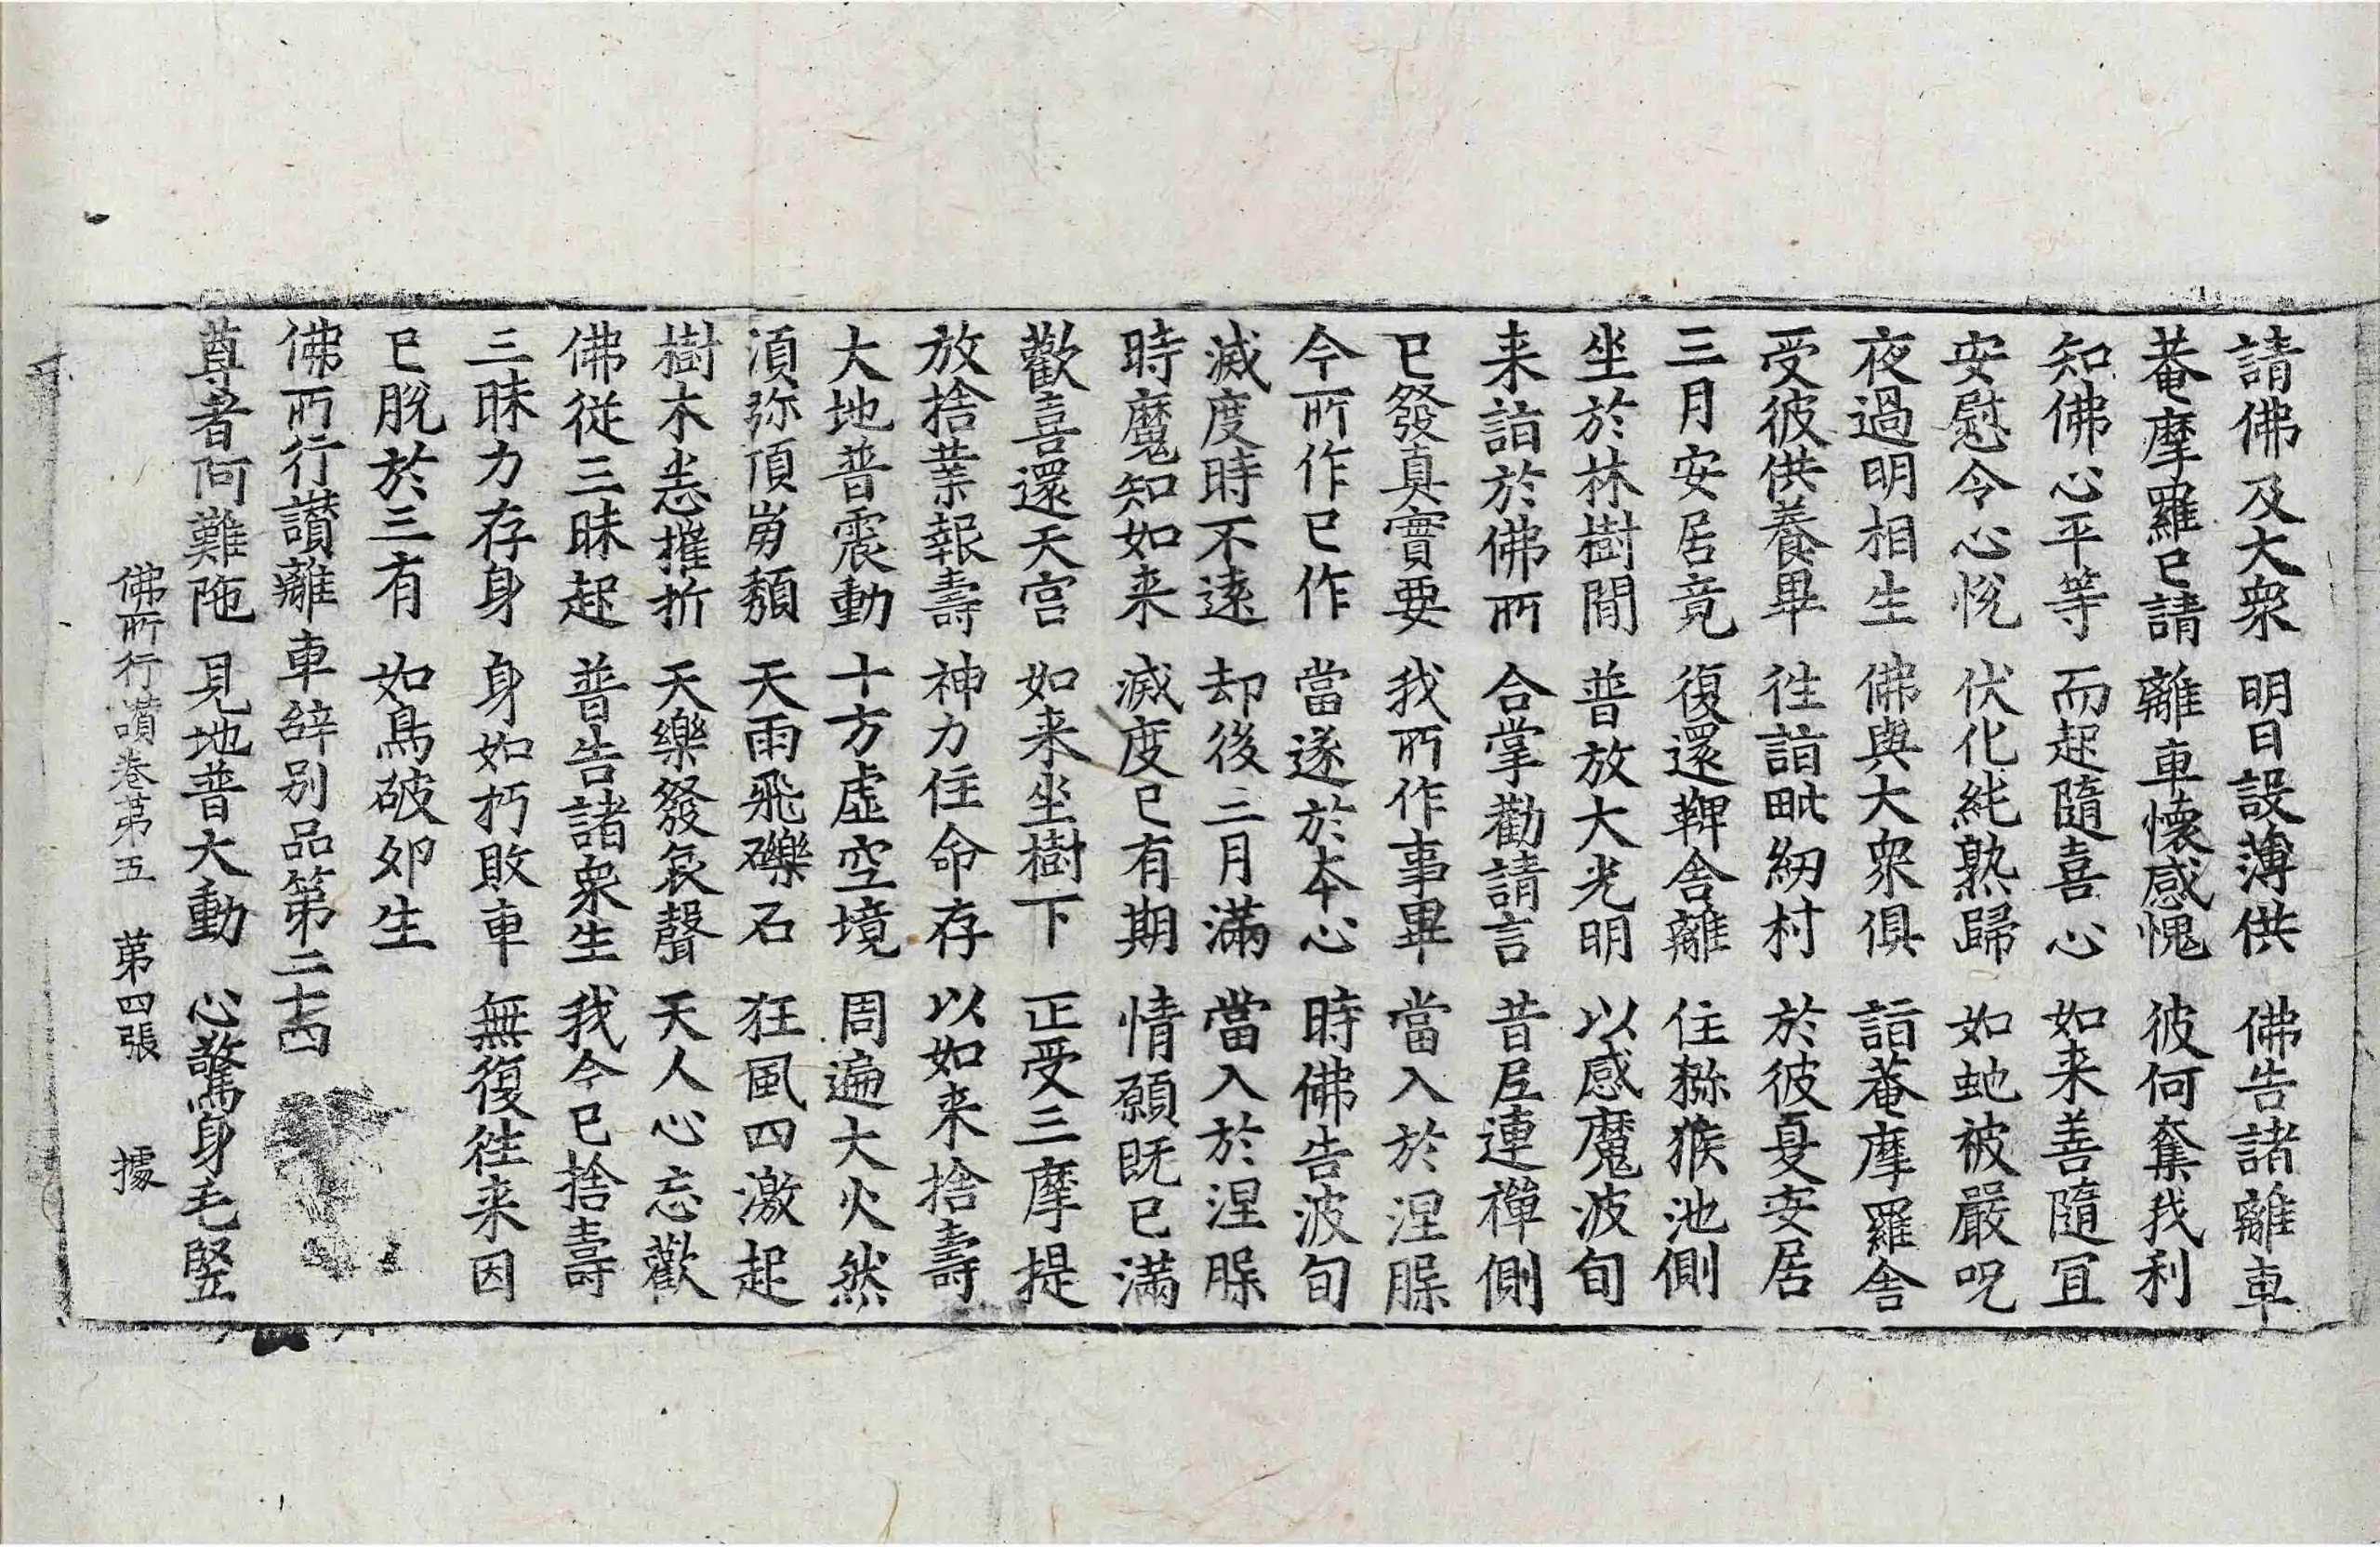 請佛及大衆 明日設薄供 佛告諸離車
菴摩羅已請 離車懷感愧 彼何奪我利
知佛心平等 而起隨喜心 如来善隨冝
安慰令心悅 伏化純熟歸 如虵被嚴呪
夜過明相生 佛與大衆俱 詣菴摩羅舎
受彼供養畢 徃詣毗紉村 於彼夏安居
三月安居竟 復還鞞舎離 住獼猴池側
坐於林樹間 普放大光明 以感魔波旬
来詣於佛所 合掌勸請言 昔尼連禪側
已發真實要 我所作事畢 當入於涅槃
今所作已作 當遂於本心 時佛告波旬
滅度時不遠 却後三月滿 當入於涅槃
時魔知如来 滅度已有期 情願既已滿
歡喜還天宫 如来坐樹下 正受三摩提
放捨業報壽 神力住命存 以如来捨壽
大地普震動 十方虛空境 周遍大火然
湏弥頂崩頹 天雨飛礫石 狂風四激起
樹木悉摧折 天樂發哀聲 天人心忘歡
佛從三昧起 普告諸衆生 我今已捨壽
三昧力存身 身如朽敗車 無復徃来因
已脫於三有 如鳥破卵生
佛所行讃離車辝别品第二十四
尊者阿難陁 見地普大動 心驚身毛竪
佛所行讃卷第五 第四張 據